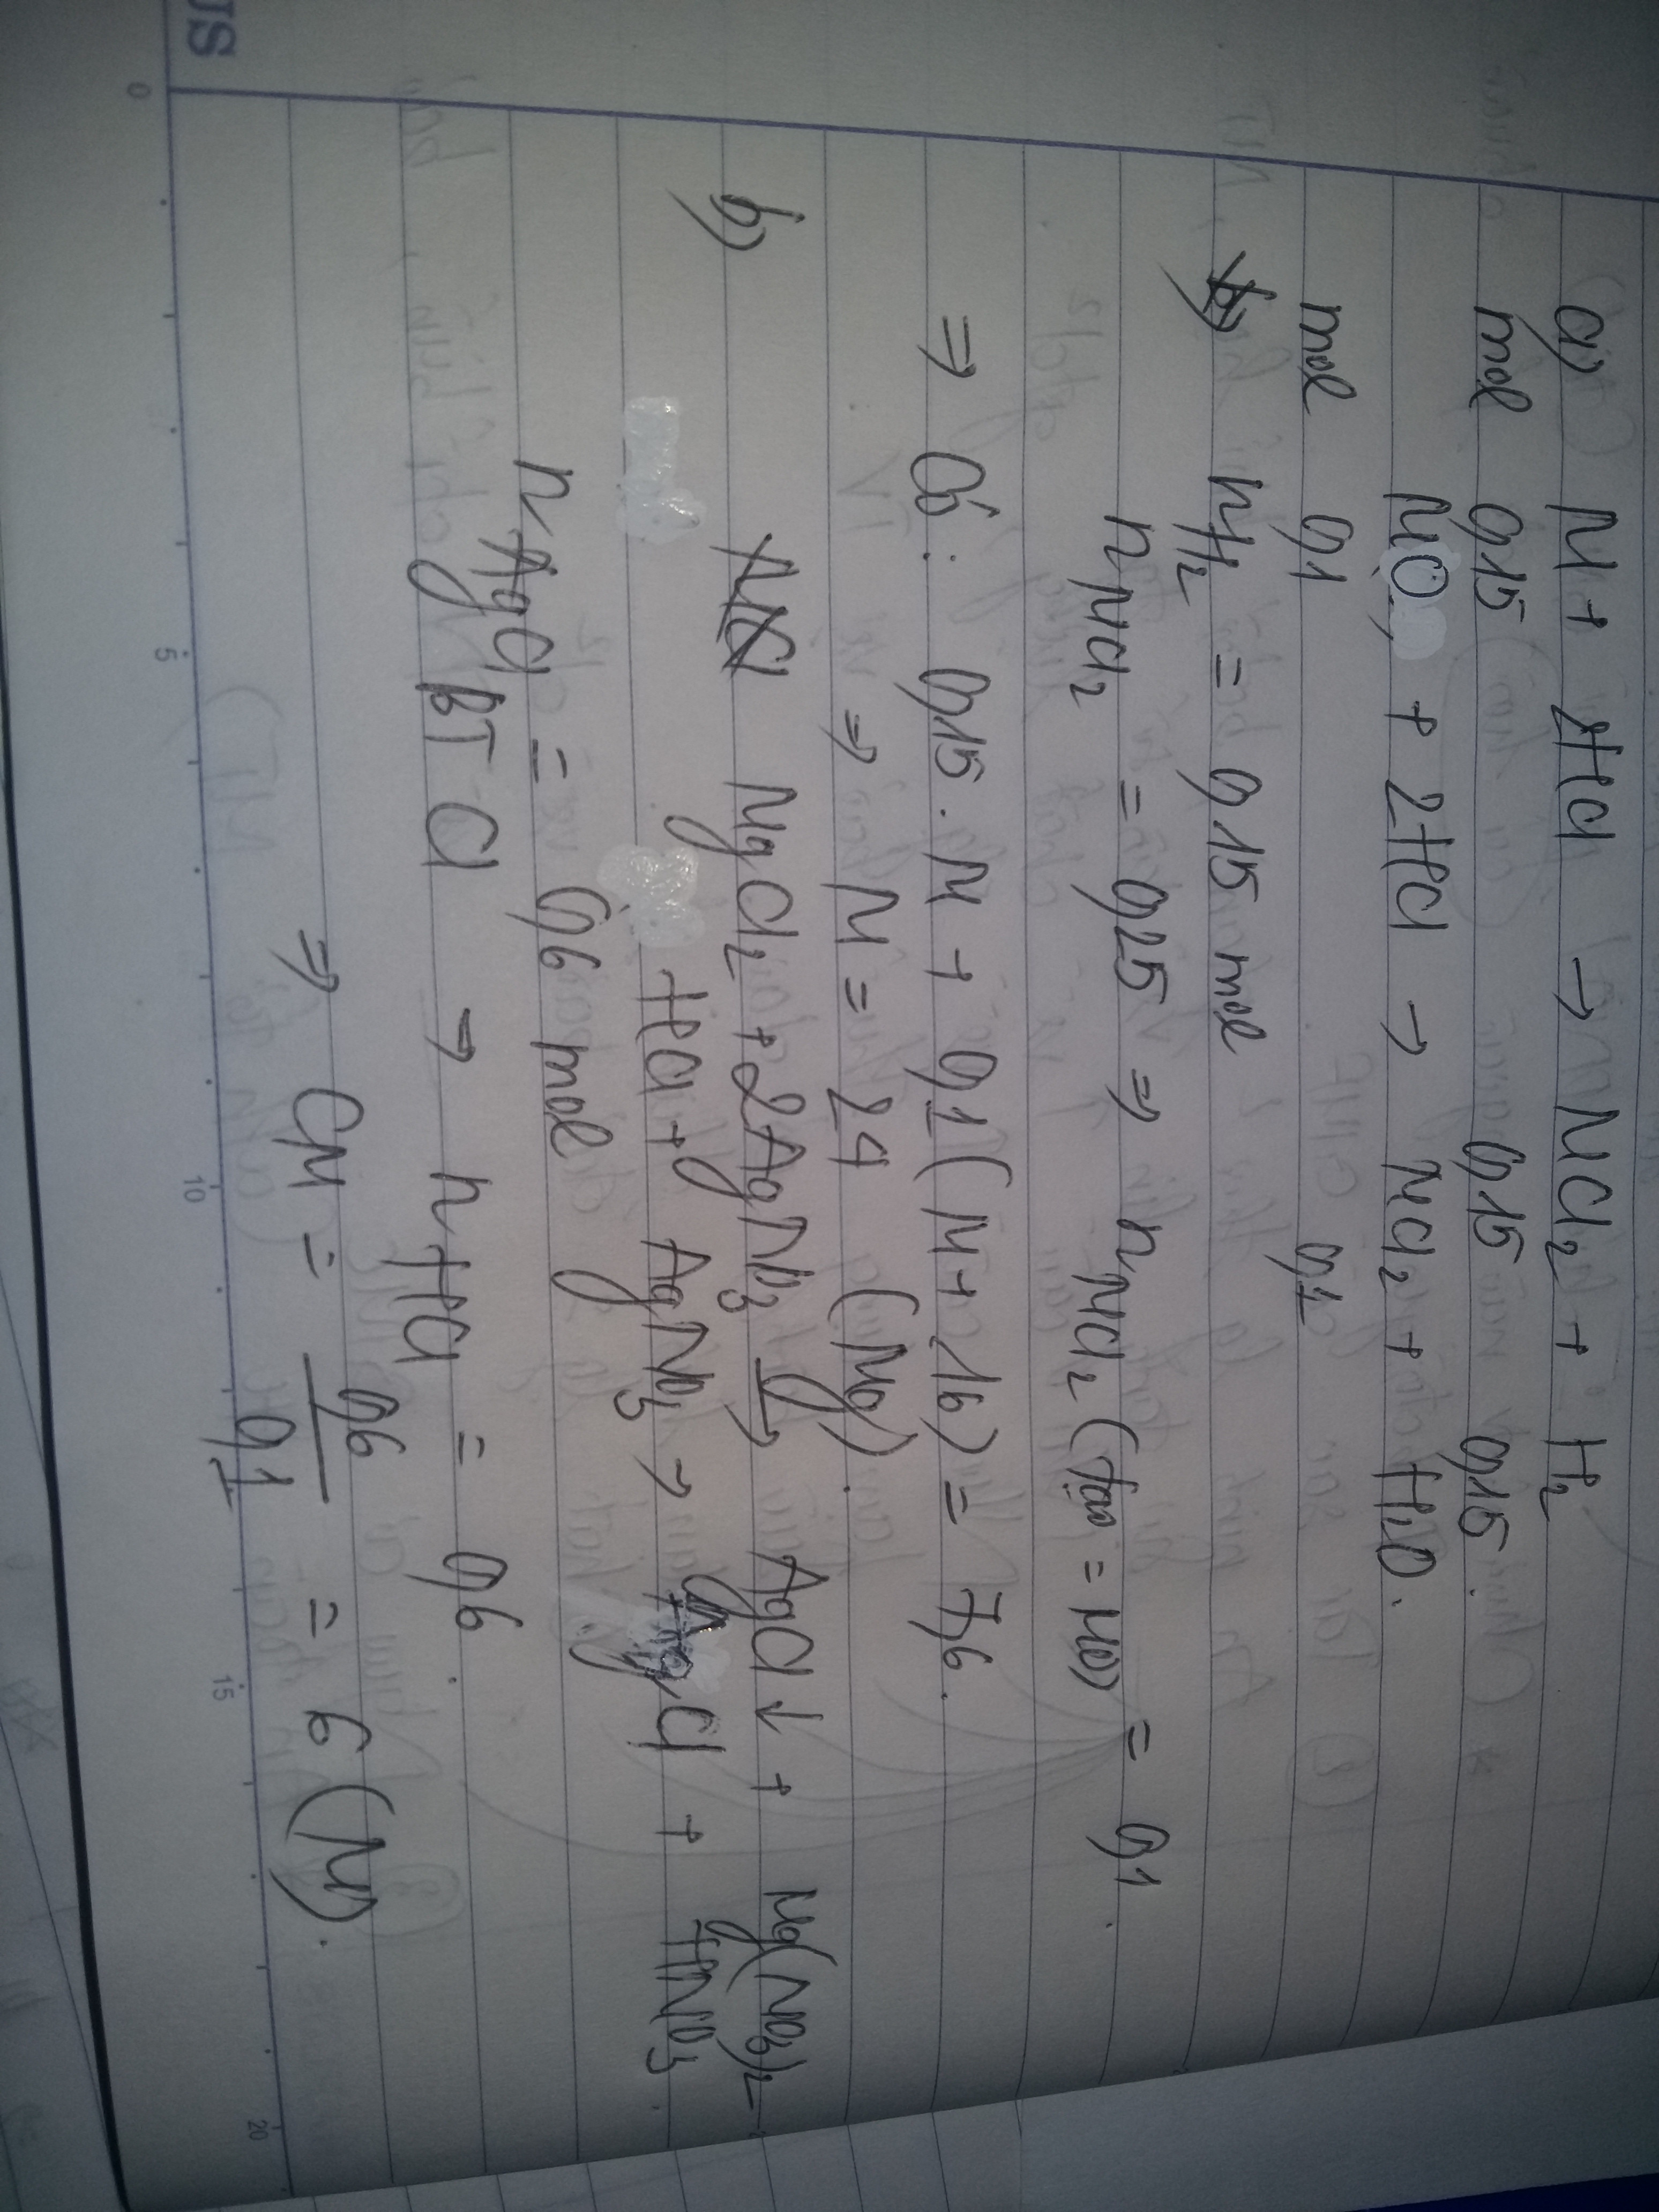 a) M + 2HCl → MCl₂ + H₂
mol 0,15 0,15 0,15.
MO + 2HCl → MCl₂ + H₂O.
mol 0,1 0,1
nH₂ = 0,15 mol
nMCl₂ = 0,25 ⇒ nMCl₂ (tạo = MO) = 0,1.
⇒ Có: 0,15.M + 0,1(M+16) = 7,6.
⇒ M = 24 (Mg).
b) MgCl₂ + 2AgNO₃ → AgCl↓ + Mg(NO₃)₂
HCl + AgNO₃ → AgCl + HNO₃.
nAgCl = 0,6 mol
BT Cl → nHCl = 0,6.
⇒ CM = 0,6/0,1 = 6 (M).
0 5 10 15 20
US